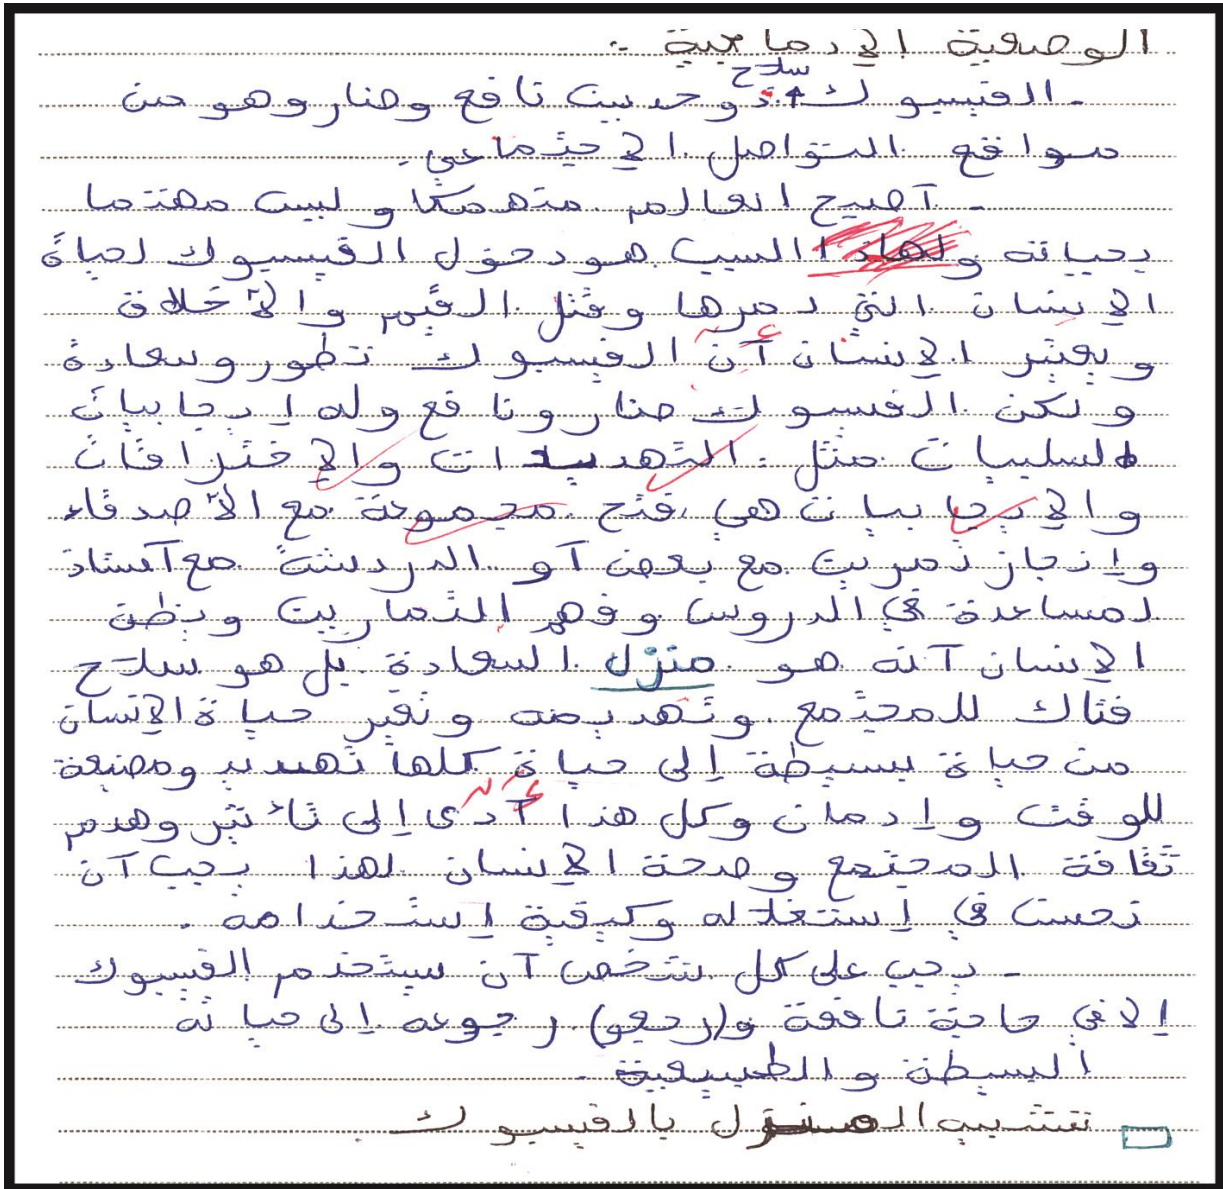 الوضعية الإدماجية :
- الفيسبوك سلاح ذو حدين نافع وضار وهو من
مواقع التواصل الإجتماعي.
- آصبح العالم منهمكا و ليس مهتما
بحياته ولهاذا السبب هو دخول الفيسبوك لحياة
الإنسان التي دمرها وقتل القيم والأخلاق
ويعتبر الإنسان أن الفيسبوك تطور وسعادة
ولكن الفيسبوك ضار ونافع وله إيجابيات
السلبيات مثل : التهديدات والإختراقات
والإيجابيات هي فتح مجموعة مع الأصدقاء
وإنجاز تمرين مع بعض آو الدردشة مع آستاذ
لمساعدة في الدروس وفهم التمارين ويظن
الإنسان آنه هو منزل السعادة بل هو سلاح
فتاك للمجتمع وتهديمه وتغير حياة الإنسان
من حياة بسيطة إلى حياة كلها تهديد ومضيعة
للوقت وإدمان وكل هذا آدى إلى تأثير وهدم
ثقافة المجتمع وصحة الإنسان لهذا يجب آن
نحسن في إستغلاله وكيفية إستخدامه .
- يجب على كل شخص آن يستخدم الفيسبوك
إلا في حاجة نافعة و(رجعو) رجوعه إلى حياته
البسيطة والطبيعية .
تشبيه المنزل بالفيسبوك